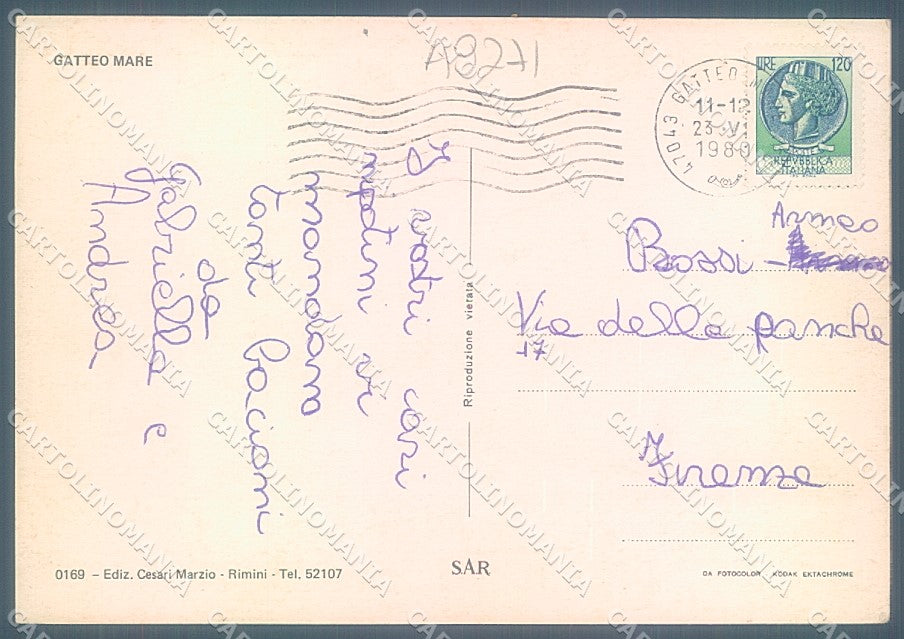 GATTEO MARE
A9271
47043 GATTEO
11-12
23·VI
1980
LIRE 120
REPVBBLICA
ITALIANA
I vostri cari
nipotini vi
mandano
tanti bacioni
da
Gabriella e
Andrea
Riproduzione vietata
Armeo
Rossi -
Via delle panche
17
Firenze
0169 – Ediz. Cesari Marzio - Rimini - Tel. 52107
SAR
DA FOTOCOLOR KODAK EKTACHROME
CARTOLINOMANIA